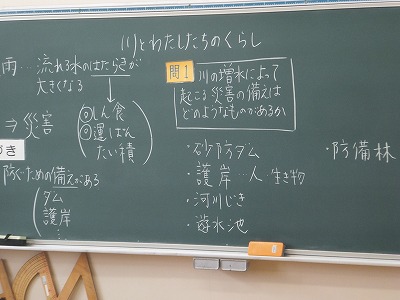 川とわたしたちのくらし
雨…流れる水のはたらきが
大きくなる
→災害
◎しん食
◎運ぱん
たい積
づき
防ぐための備えがある
ダム
護岸
⋮
問1
川の増水によって
起こる災害の備えは
どのようなものがあるか
・砂防ダム
・護岸…人、生き物
・河川じき
・遊水池
・防備林